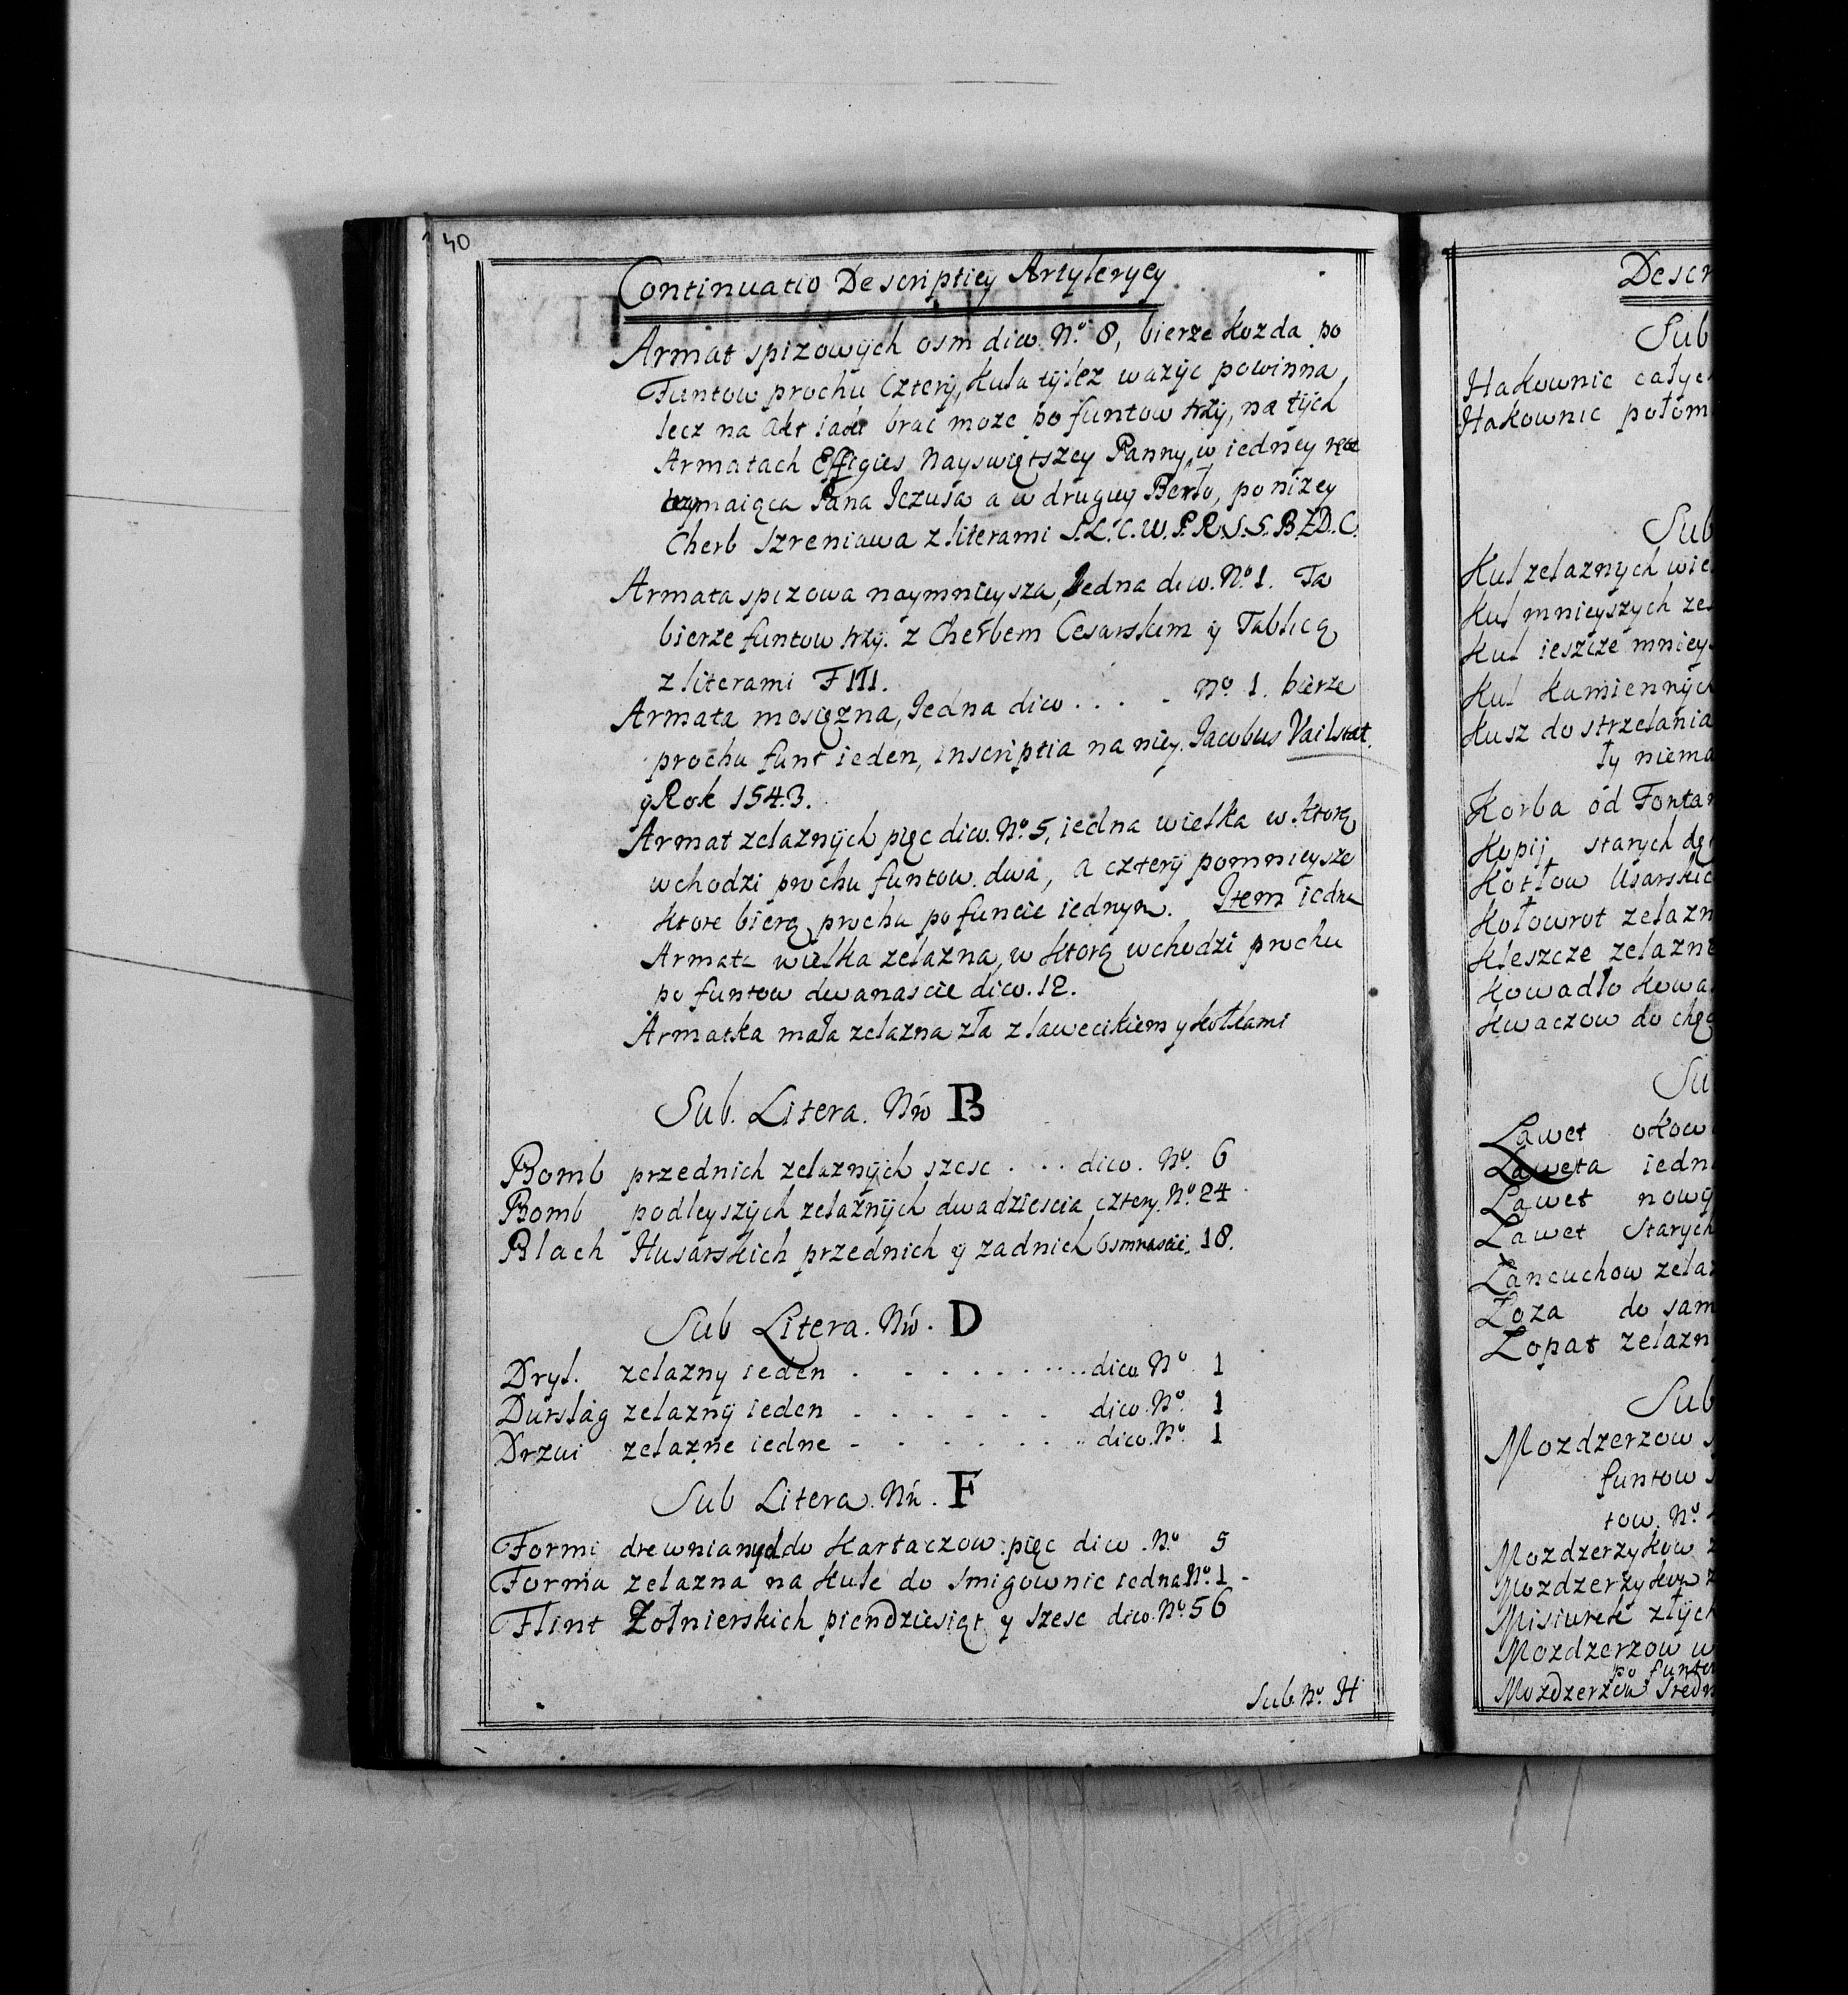 40
Continuatio Descriptiey Artyleryey
Armat spizowych osm dico. No. 8, bierze kozda po
Funtow prochu Cztery, kula tylez wazyc powinna,
lecz na brac moze po funtow trzy, na tych
Armatach Effigies Nayswiętszey Panny, w iedney ręce
trzymaiąca Pana Jezusa a w drugiey Berło, ponizey
Cherb Szreniawa z literami S.L.C.W.P.R.S.S.B.Z.D.C.
Armata spizowa naymnieysza, Jedna dico. No. 1. Ta
bierze funtow trzy. z Cherbem Cesarskim y Tablicą
z literami F III.
Armata mosięzna, Jedna dico . . . . No. 1. bierze
prochu funt ieden, inscriptia na niey. Jacobus
y Rok 1543.
Armat zelaznych pięc dico. No. 5, iedna wielka w ktorą
wchodzi prochu funtow dwa, a cztery pomnieysze
ktore bierą prochu po funcie iednym. Item iedna
Armata wielka zelazna, w ktorą wchodzi prochu
po funtow dwanascie dico. 12.
Armatka mała zelazna zła z lawecikiem y kołkami
Sub. Litera. Nro B
Bomb przednich zelaznych szesc . . . . dico. No. 6
Bomb podleyszych zelaznych dwadziescia cztery No. 24
Blach Husarskich przednich y zadnich osmnascie, 18.
Sub Litera. Nro. D
Dryl. zelazny ieden . . . . . . . . . dico No. 1
Durslag zelazny ieden . . . . . . dico. No. 1
Drzwi zelazne iedne - . . . . . . dico. No. 1
Sub Litera. Nro. F
Formi drewnianych do Kartaczow pięc dico. No. 5
Forma zelazna na kule do smigownic iedna No. 1 -
Flint Zołnierskich piendziesiąt y szesc dico. No. 56
Sub. No. H
Descr
Sub
Hakownic całych
Hakownic połom
Sub
Kul zelaznych wie
Kul mnieyszych zel
Kul ieszcze mniey
Kul kamiennych
Kusz do strzelania
ty niema
Korba od Fontan
Kopij starych
Kotłow Usarskic
Kołowrot zelazn
Kleszcze zelazne
Kowadło kowa
Kwaczow do
Su
Lawet okow
Laweta iedn
Lawet nowy
Lawet Starych
Łancuchow zelaz
Łoza do sam
Łopat zelazn
Sub
Mozdzerzow
funtow
tow. No.
Mozdzerzykow z
Mozdzerzykow z
Misiurek złych
Mozdzerzow w
po funtow
Mozdzerzow sredn